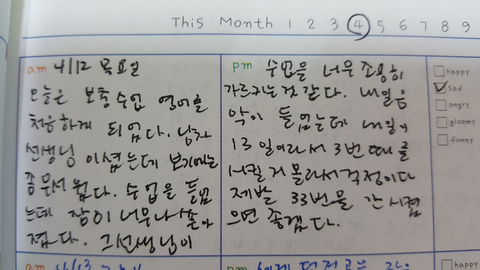 This Month 1 2 3 4 5 6 7 8 9
am 4/12 목요일
오늘은 보충수업 영어를
처음하게 되었다. 남자
선생님 이셨는데 보기에는
좀 무서웠다. 수업을 들었
는데 잠이 너무나 쏟아
졌다. 그선생님이
pm 수업을 너무 조용히
가르치는것 같다. 내일 음
악이 들었는데 내일이
13일이라서 3번 때를
시킬거 몰라서 걱정이다
제발 33번을 안 시켰
으면 좋겠다.
happy
sad
angry
gloomy
funny
am 4/13
pm
happy